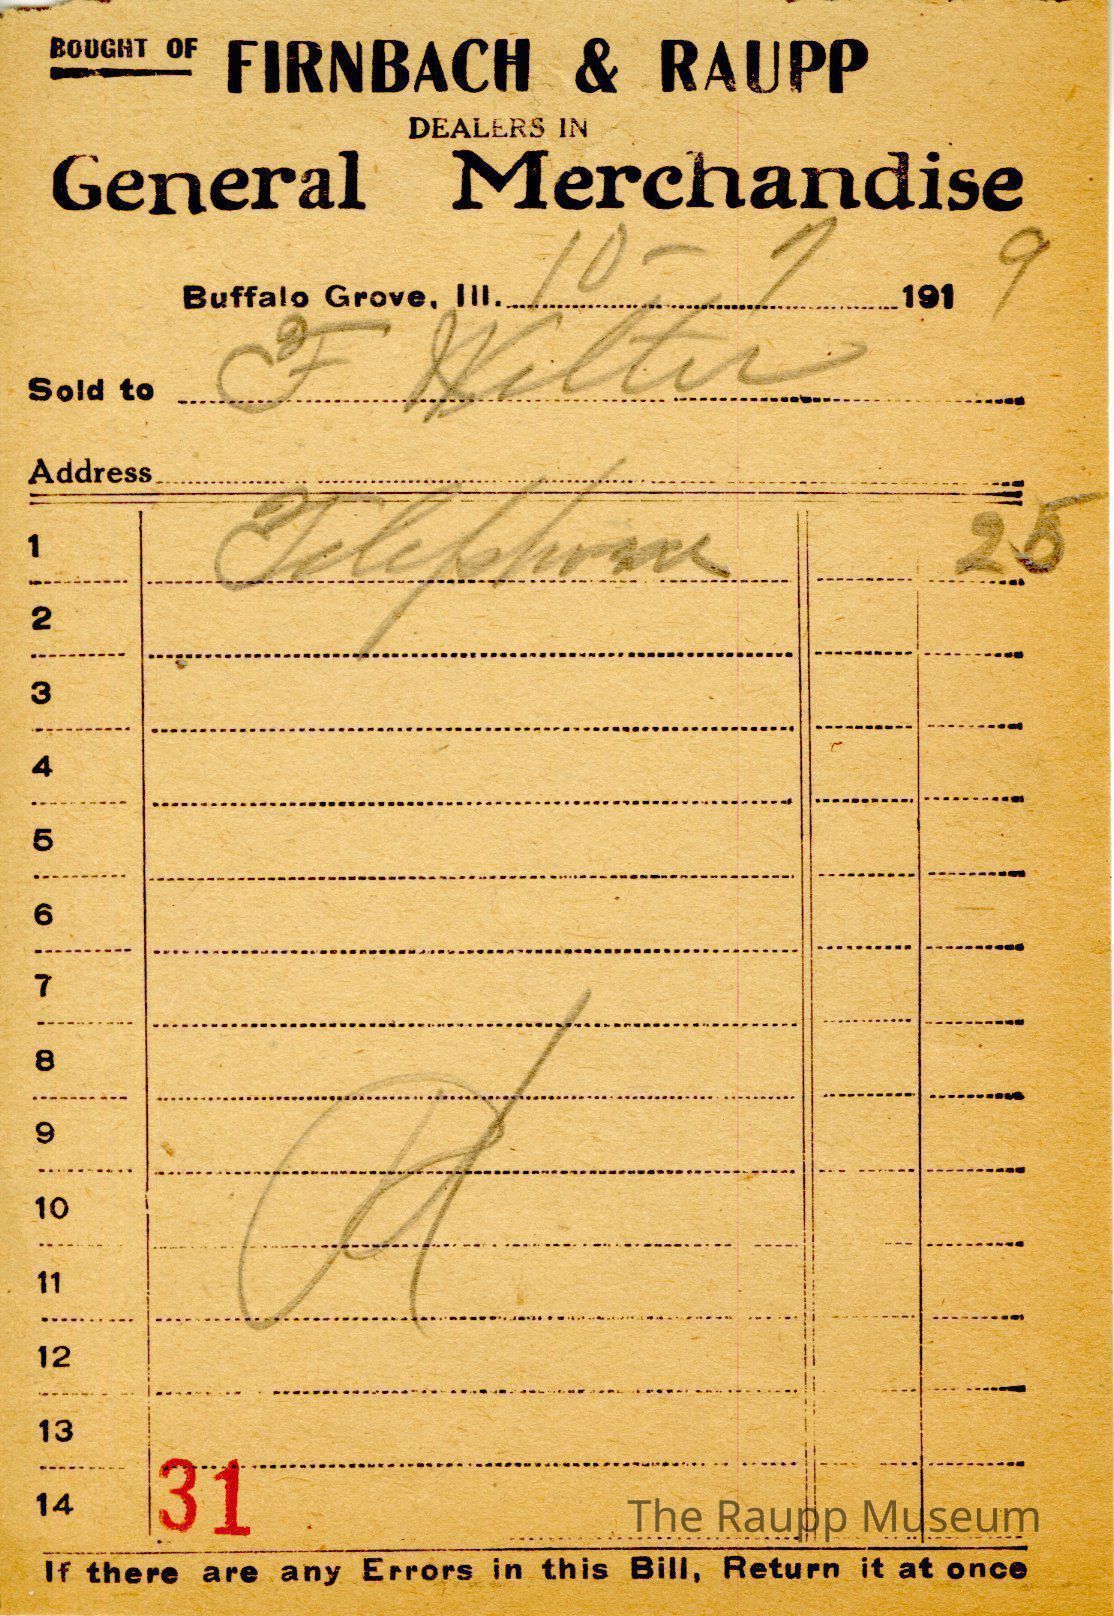 BOUGHT OF FIRNBACH & RAUPP
DEALERS IN
General Merchandise
Buffalo Grove, Ill. 10-7 1919
Sold to F Wilter
Address
1 Telephone 25
2
3
4
5
6
7
8
9
10
11
12
13
31
14
The Raupp Museum
If there are any Errors in this Bill, Return it at once